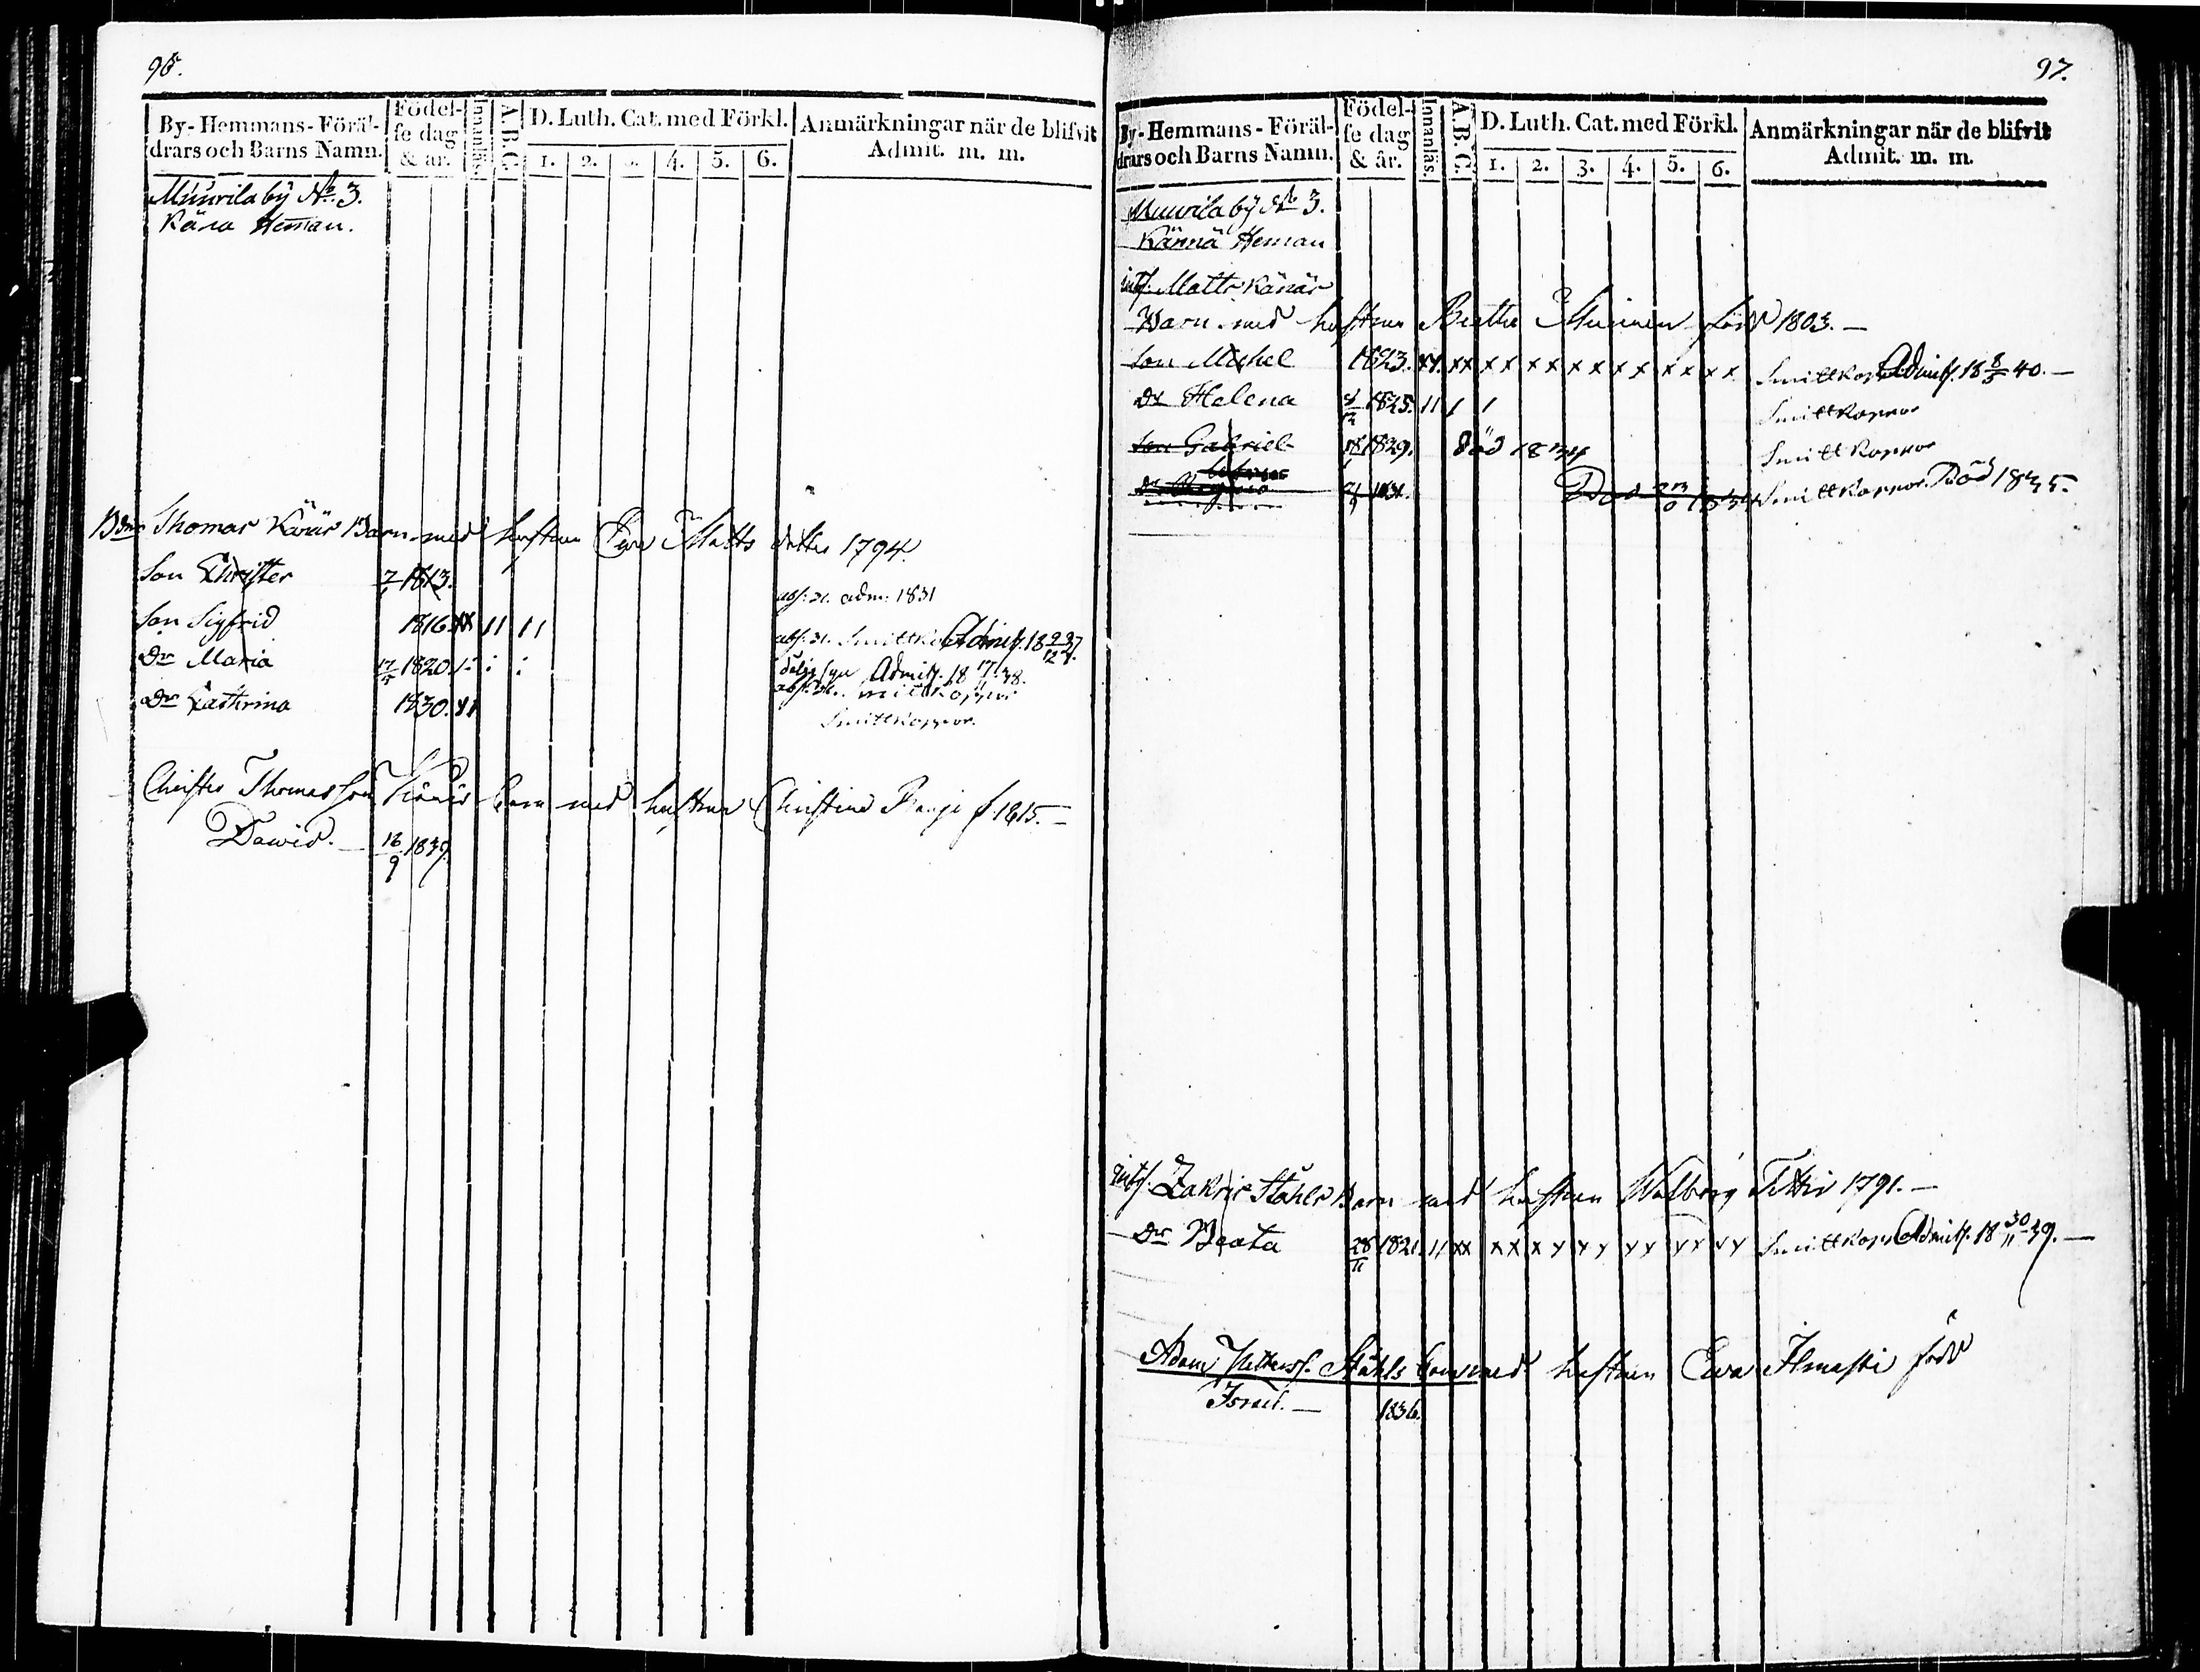 96.
By-Hemmans-Föräl-drars och Barns Namn.
Födel-se dag & år.
Innanläs.
A.B.C.
D. Luth. Cat. med Förkl.
1. 2. 3. 4. 5. 6.
Anmärkningar när de blifvit Admit. m. m.
Muurila by No. 3.
Kära Heman.
Bdn Thomas Känär Barn med hustrun Ewa Matts dotter 1794.
Son Christer 7 1813. abs: 31. adm: 1831
Son Sigfrid 1816 xx 11 11 abs: 31. Smittko Admitt. 18 23/12 37.
Dr Maria 17/5 1820 Admitt. 18 17/11 38.
abs: 31. mittkoppor
Dr Cathrina 1830. Smittkoppor.
Christer Thomasson Känär barn med hustrun Christina f. 1815. —
Dawid. — 16/9 1837.
97.
By-Hemmans-Föräl-drars och Barns Namn.
Födel-se dag & år.
Innanläs.
A.B.C.
D. Luth. Cat. med Förkl.
1. 2. 3. 4. 5. 6.
Anmärkningar när de blifvit Admit. m. m.
Muurila by No 3.
Kännä Heman
inh. Matts Känär
Barn med hustrun Beatha Muinen född 1803. —
Son Michel 1823. xx. xx xx xx xx xx xx xx Smittkop Admitt. 18 8/5 40. —
Dr Helena 1825. 11 1 1 Smittkoppor
Son Gabriel 1829. död 1834 Smittkoppor
Dr 1831. Död 1834 Smittkoppor. Död 1835.
inh. Zakris Ståhls Barn med hustrun Walborg Tettis 1791. —
Dr Beata 28/11 1821. 11 xx xx xx xx xx xx xx Smittkopp Admitt. 18 30/11 39. —
Adam Petterss. Ståhls barn med hustrun Ewa Ilmasti född
Israel. — 1836.